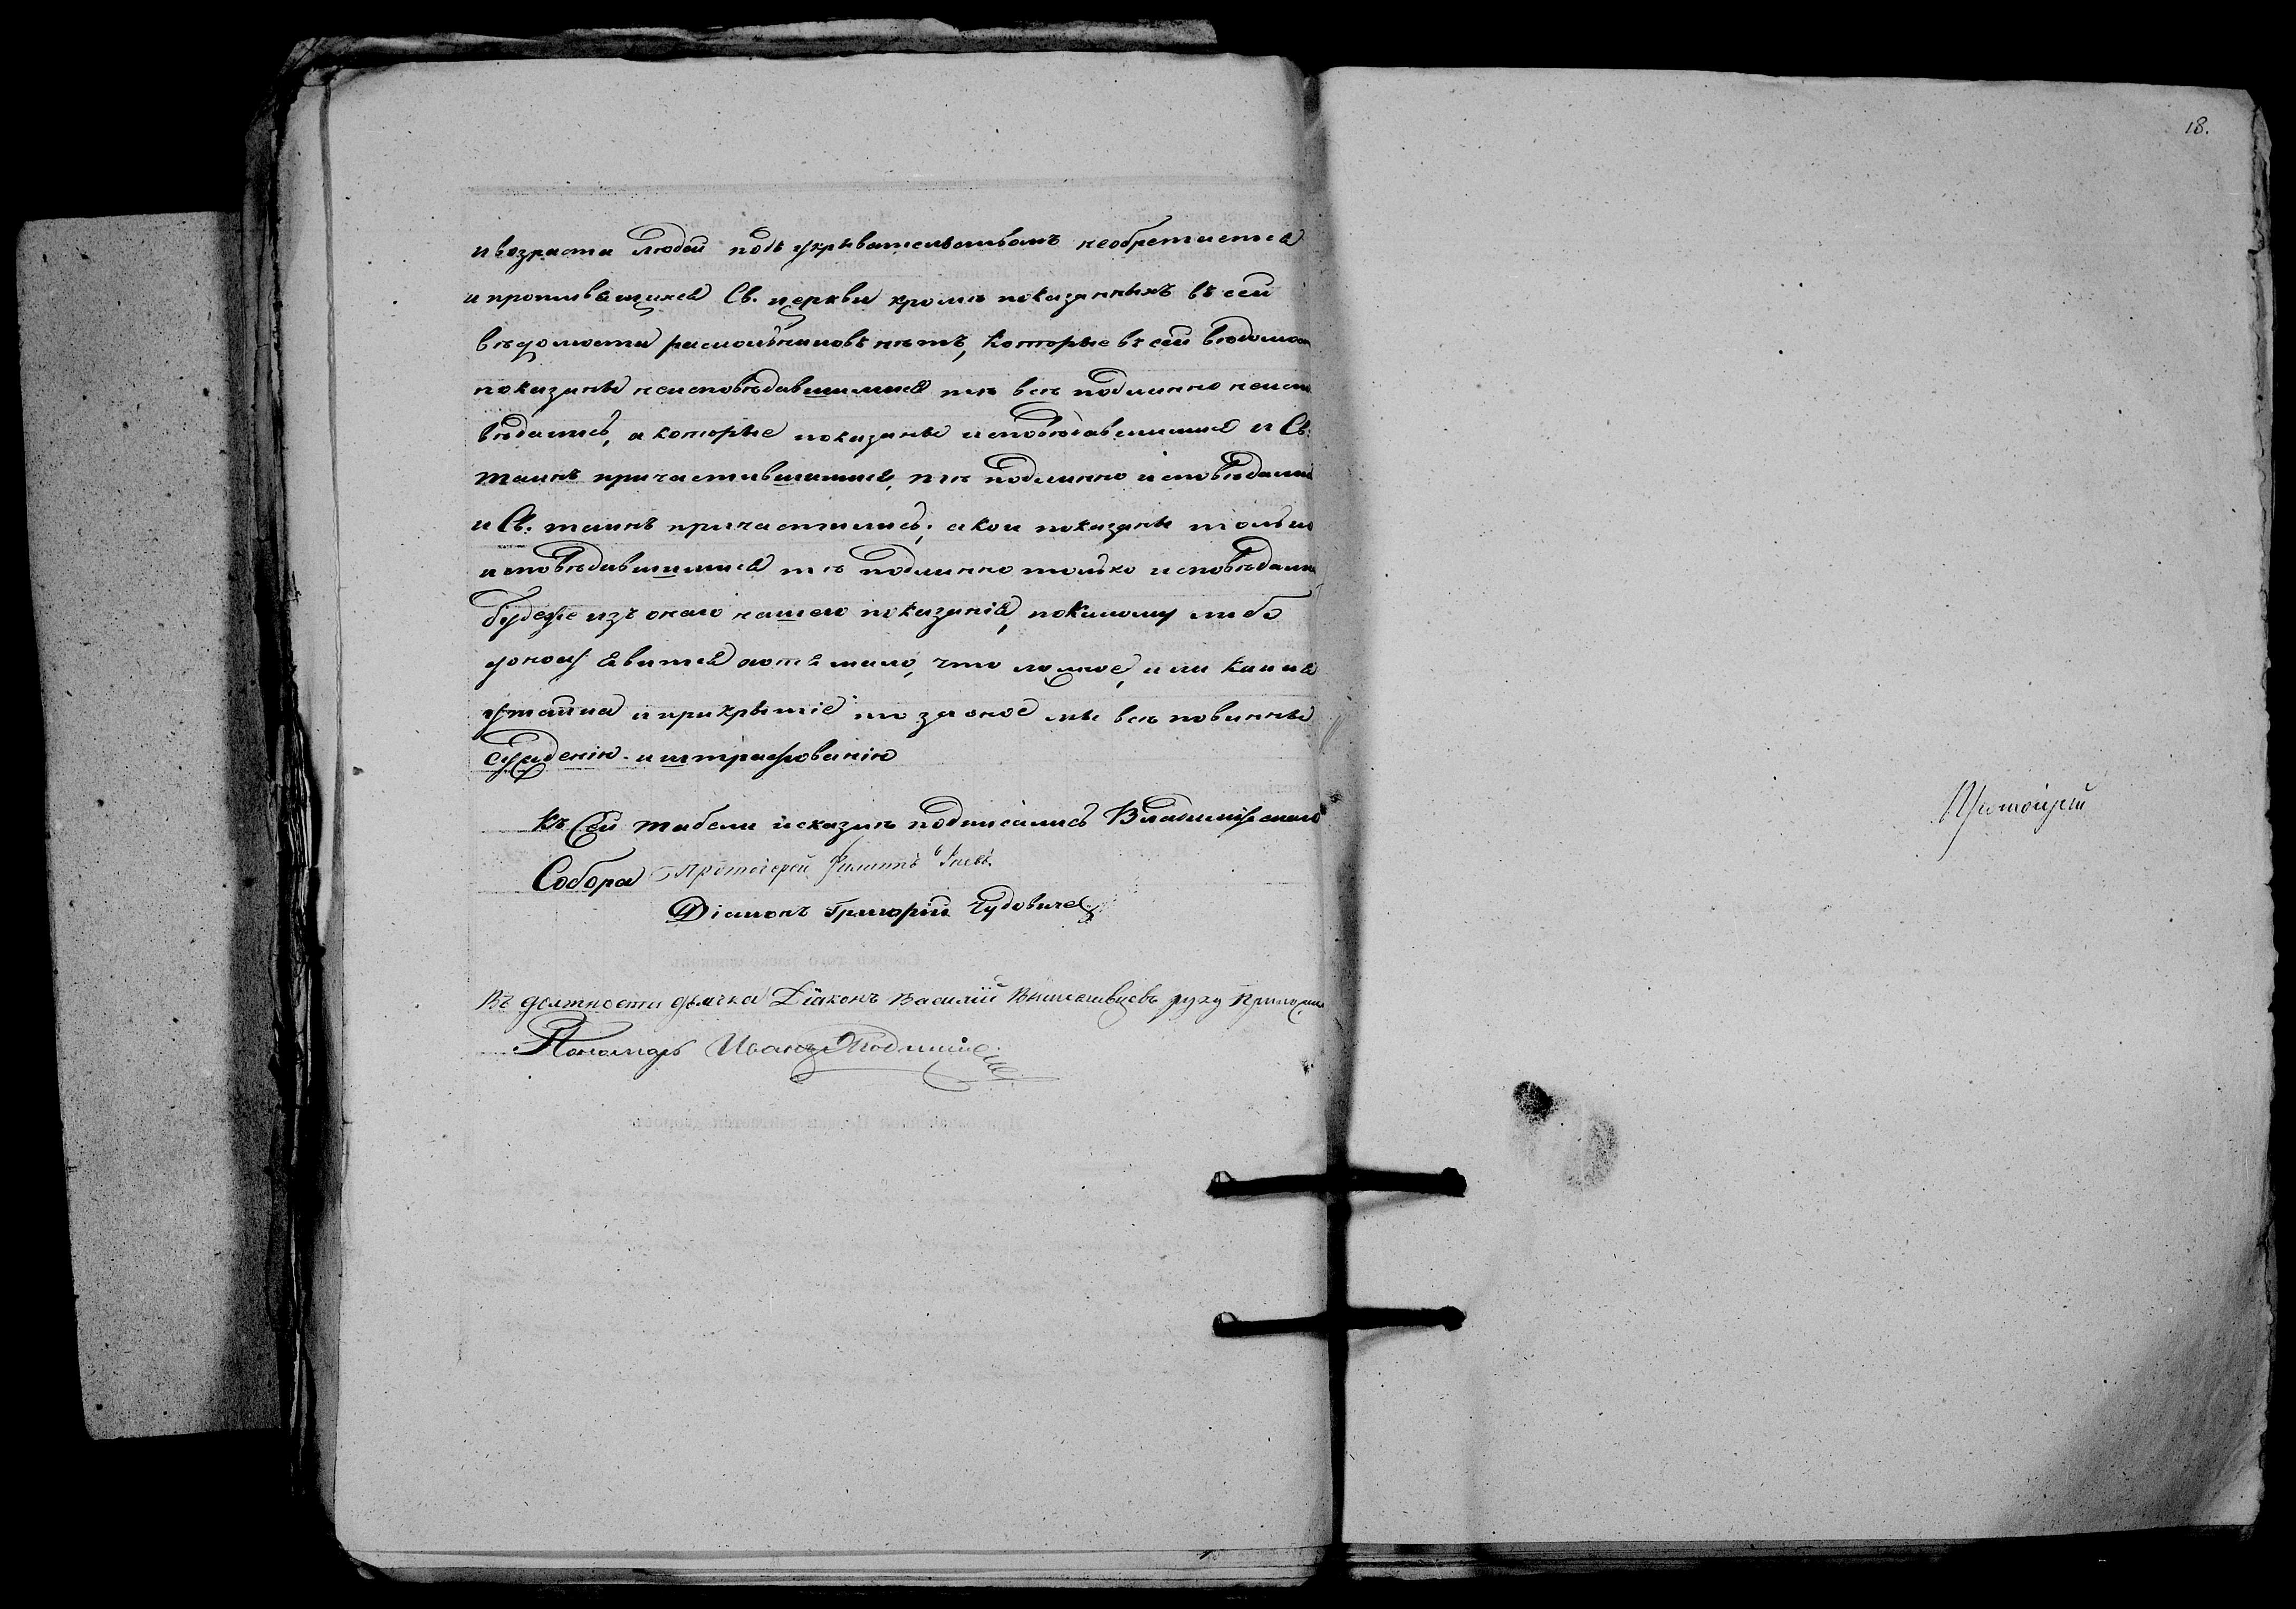 18.
и возраста людей подъ укрывательствомъ необретается
и противящихся Св. церкви кроме показанныхъ въ сей
вѣдомости расколниковъ нѣтъ, которые въ сей вѣдомости
показаны неисповѣдавшимися тѣ всѣ подлинно неиспо
вѣдались, а которые показаны исповѣдавшимися и Св.
таинъ причастившимися, тѣ подлинно исповѣдались
и Св. таинъ причастились; а кои показаны только
исповѣдавшимися тѣ подлинно только исповѣдались
будеже изъ онаго нашего показанія, покакому либо
доносу явится хотя мало, что ложное, или какая
утайка и прикрытіе то за оное мы всѣ повинны
сужденію и штрафованію
Къ сей табели и сказкѣ подписались Владимірскаго
Собора Протоіерей Филиппъ
Діаконъ Григорій
Въ должности дьячка Діаконъ Василій Вышеславцевъ руку приложилъ
Пономарь Иванъ
Протоіерей